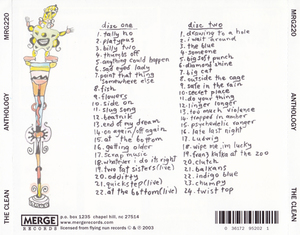 MRG220
ANTHOLOGY
THE CLEAN
disc one
1. tally ho
2. platypus
3. billy two
4. thumbs off
5. anything could happen
6. sad eyed lady
7. point that thing
somewhere else
8. fish
9. flowers
10. side on
11. slug song
12. beatnik
13. end of my dream
14. on again/off again
15. at the bottom
16. getting older
17. scrap music
18. whatever i do its right
19. two fat sisters (live)
20. oddity
21. quickstep (live)
22. at the bottom (live)
disc two
1. drawing to a hole
2. i wait around
3. the blue
4. someone
5. big soft punch
6. diamond shine
7. big cat
8. outside the cage
9. safe in the rain
10. secret place
11. do your thing
12. linger longer
13. too much violence
14. trapped in amber
15. psychedelic ranger
16. late last night
17. ludwig
18. wipe me, im lucky
19. franz kafka at the zoo
20. clutch
21. balkans
22. indigo blue
23. chumpy
24. twist top
MERGE
RECORDS
p.o. box 1235 chapel hill, nc 27514
www.mergerecords.com
licensed from flying nun records © ℗ 2003
0 36172 95202 1
MRG220
ANTHOLOGY
THE CLEAN